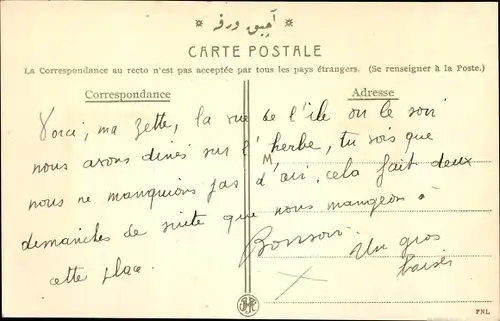 CARTE POSTALE
La Correspondance au recto n'est pas acceptée par tous les pays étrangers. (Se renseigner à la Poste.)
Correspondance
Adresse
Voici, ma Zette, la vue de l'île où le soir
nous avons dînés sur l'herbe, tu vois que
nous ne manquions pas d'air, cela fait deux
dimanches de suite que nous mangeons à
cette place.
Bonsoir.
Un gros
baiser
M
FNL